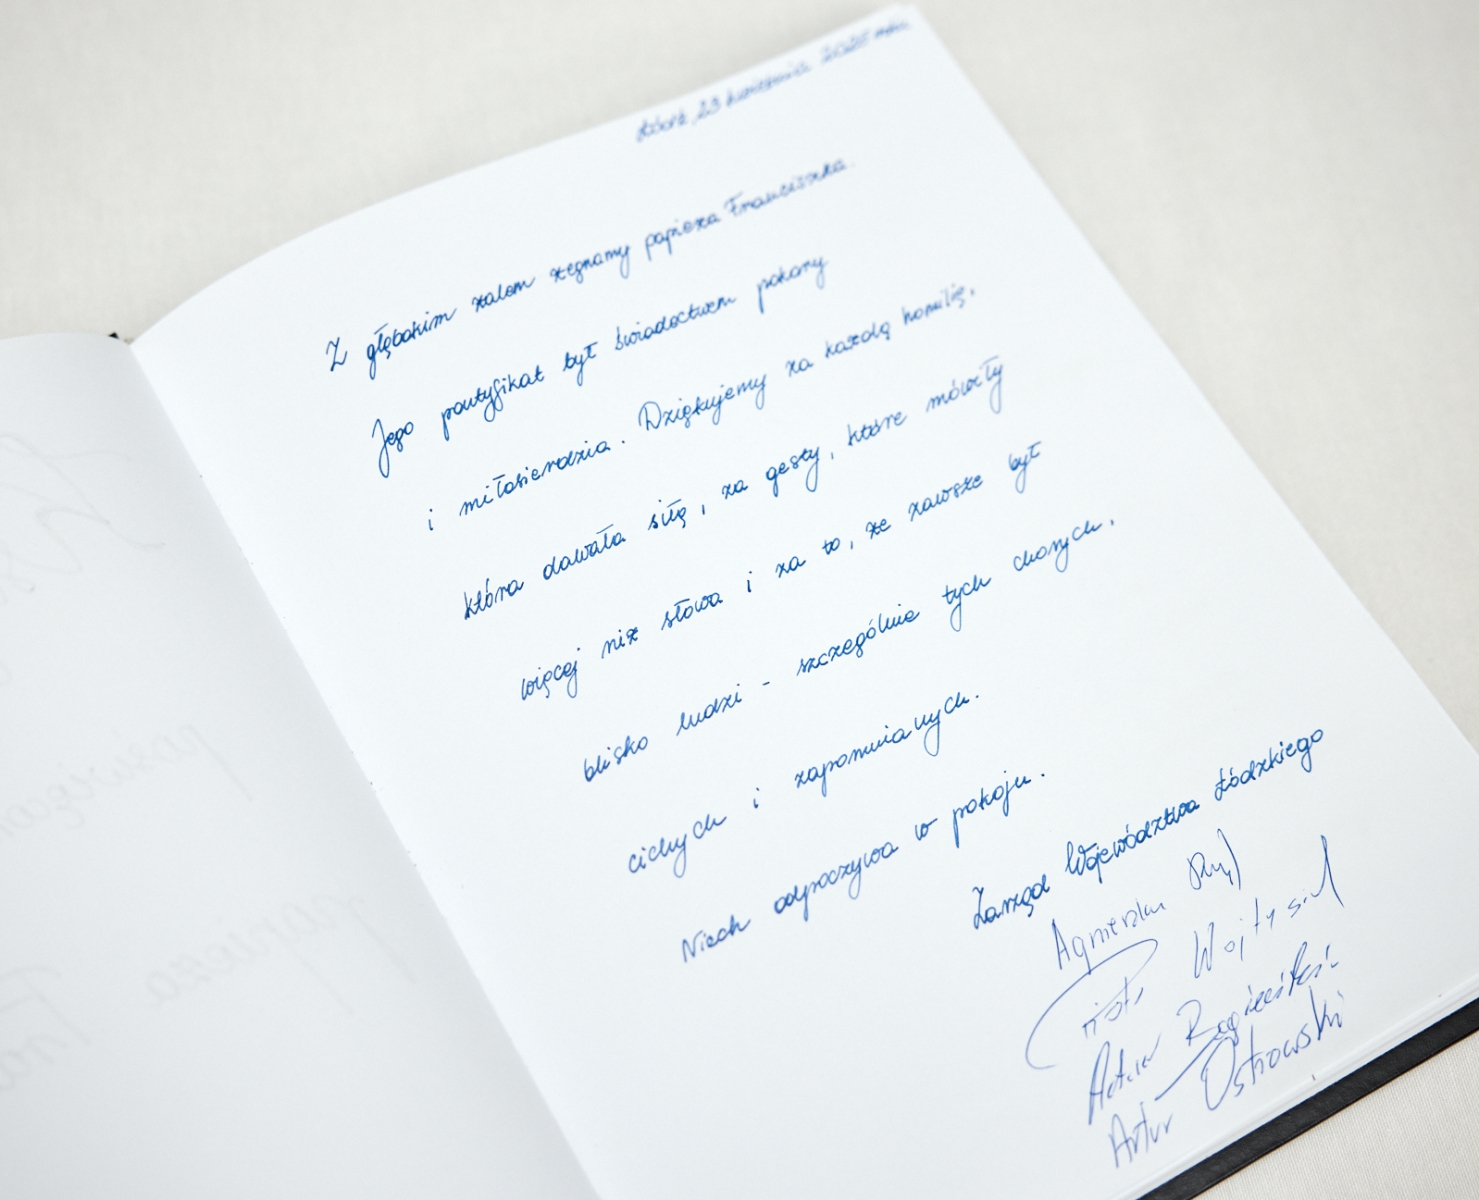 Łódź, 23 kwietnia 2025 roku
Z głębokim żalem żegnamy papieża Franciszka.
Jego pontyfikat był świadectwem pokory
i miłosierdzia. Dziękujemy za każdą homilię,
która dawała siłę, za gesty, które mówiły
więcej niż słowa i za to, że zawsze był
blisko ludzi - szczególnie tych chorych,
cichych i zapomnianych.
Niech odpoczywa w pokoju.
Zarząd Województwa Łódzkiego
Agnieszka Ryś
Piotr Wojtysiak
Artur Bagieński
Artur Ostrowski